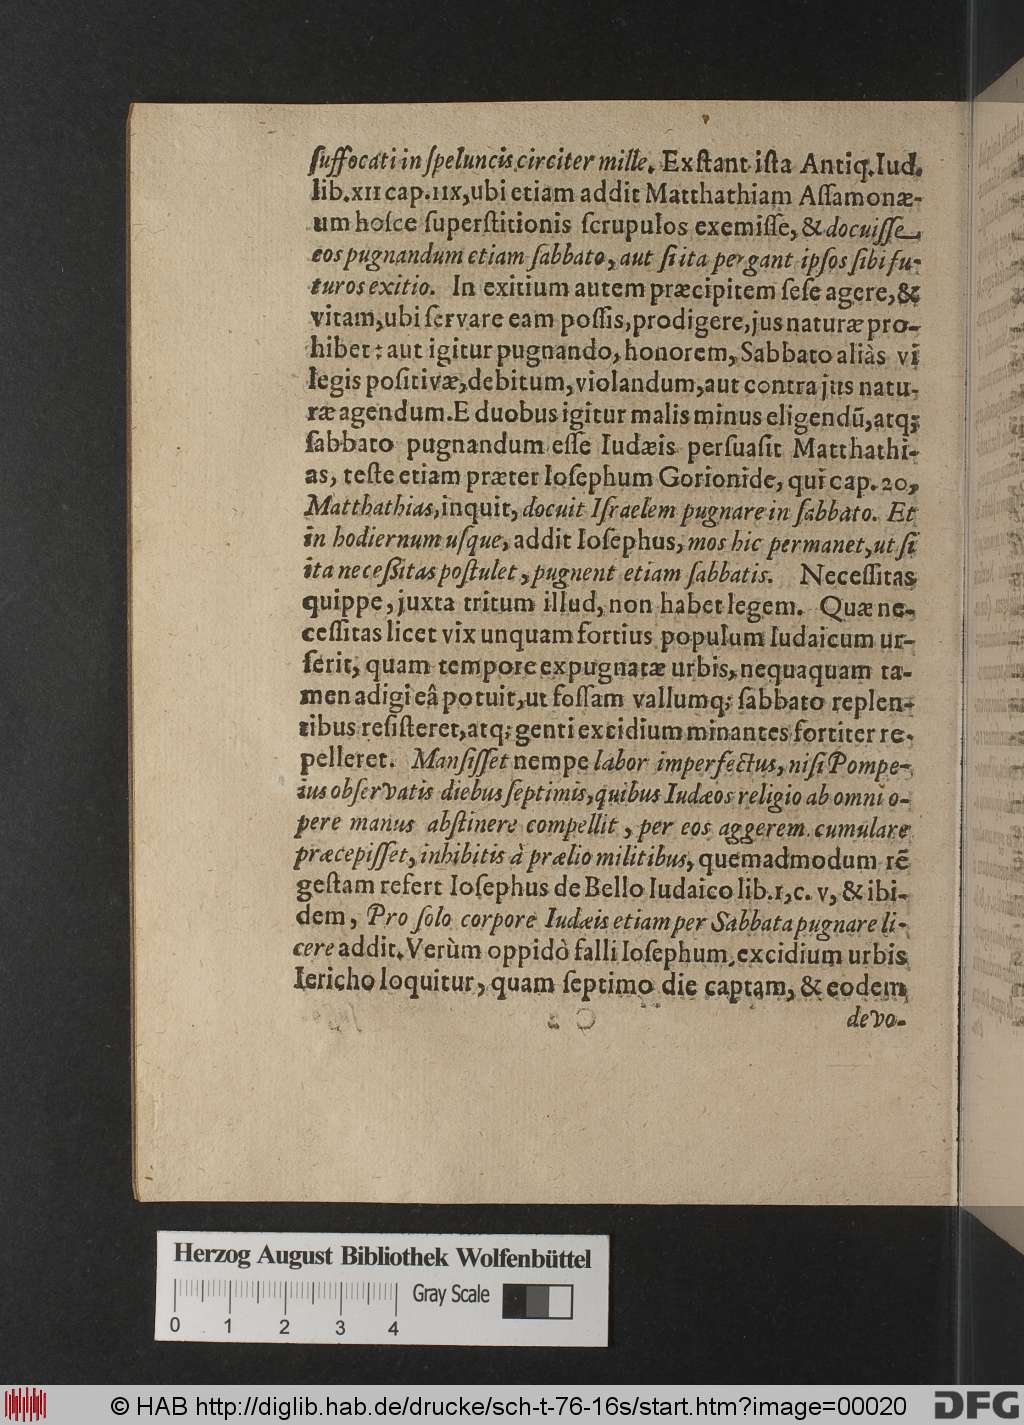 ſuffocati in ſpeluncis circiter mille. Exſtant iſta Antiq. Iud.
lib. XII cap. IIX, ubi etiam addit Matthathiam Aſſamonæ-
um hoſce ſuperſtitionis ſcrupulos exemiſſe, & docuiſſe
eos pugnandum etiam ſabbato, aut ſi ita pergant ipſos ſibi fu-
turos exitio. In exitium autem præcipitem ſeſe agere, &
vitam, ubi ſervare eam poſſis, prodigere, jus naturæ pro-
hibet: aut igitur pugnando, honorem, Sabbato aliàs vi
legis poſitivæ, debitum, violandum, aut contra jus natu-
ræ agendum. E duobus igitur malis minus eligendū, atq;
ſabbato pugnandum eſſe Iudæis perſuaſit Matthathi-
as, teſte etiam præter Ioſephum Gorionide, qui cap. 20,
Matthathias, inquit, docuit Iſraelem pugnare in ſabbato. Et
in hodiernum uſque, addit Ioſephus, mos hic permanet, ut ſi
ita neceſſitas poſtulet, pugnent etiam ſabbatis. Neceſſitas
quippe, juxta tritum illud, non habet legem. Quæ ne-
ceſſitas licet vix unquam fortius populum Iudaicum ur-
ſerit, quam tempore expugnatæ urbis, nequaquam ta-
men adigi eâ potuit, ut foſſam vallumq; ſabbato replen-
tibus reſiſteret, atq; genti excidium minantes fortiter re-
pelleret. Manſiſſet nempe labor imperfectus, niſi Pompe-
ius obſervatis diebus ſeptimis, quibus Iudæos religio ab omni o-
pere manus abſtinere compellit, per eos aggerem cumulare
præcepiſſet, inhibitis à prælio militibus, quemadmodum rē
geſtam refert Ioſephus de Bello Iudaico lib. 1, c. v, & ibi-
dem, Pro ſolo corpore Iudæis etiam per Sabbata pugnare li-
cere addit. Verùm oppidò falli Ioſephum, excidium urbis
Iericho loquitur, quam ſeptimo die captam, & eodem
C 2 devo-
Herzog August Bibliothek Wolfenbüttel
0 1 2 3 4 Gray Scale
© HAB http://diglib.hab.de/drucke/sch-t-76-16s/start.htm?image=00020 DFG